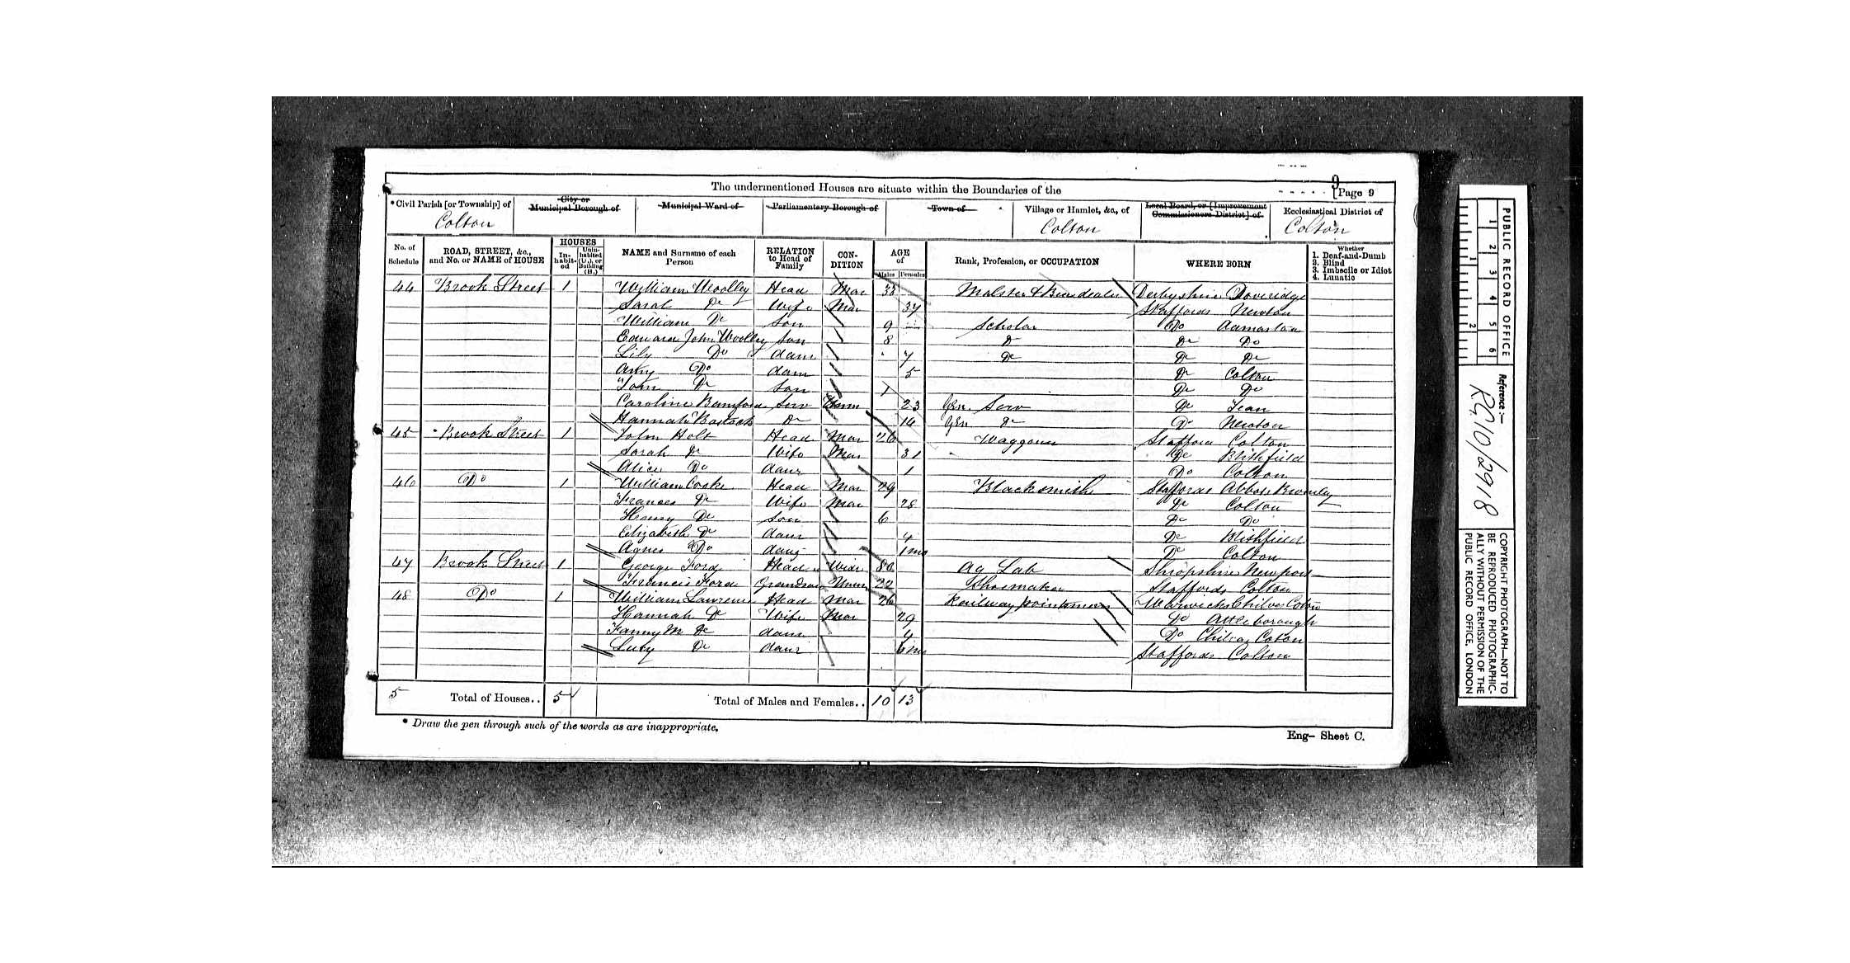 9
The undermentioned Houses are situate within the Boundaries of the [Page 9
* Civil Parish [or Township] of City or Municipal Borough of Municipal Ward of Parliamentary Borough of Town of Village or Hamlet, &c., of Local Board, or [Improvement Commissioners District] of Ecclesiastical District of
Colton Colton Colton
No. of Schedule ROAD, STREET, &c., and No. or NAME of HOUSE HOUSES Inhabited Uninhabited (U.), or Building (B.) NAME and Surname of each Person RELATION to Head of Family CONDITION AGE of Males Females Rank, Profession, or OCCUPATION WHERE BORN Whether 1. Deaf-and-Dumb 2. Blind 3. Imbecile or Idiot 4. Lunatic
44 Brook Street 1 William Woolley Head Mar 33 Malster & Derbyshire Doveridge
Sarah Do Wife Mar 37 Staffords Newton
William Do Son 9 Scholar Do
Edward John Woolley Son 8 Do Do Do
Lily Do daur 7 Do Do Do
Amy Do daur 5 Do Colton
Tom Do Son 1 Do Do
Caroline Bamford Serv Unm 23 Gen. Serv Do Tean
Hannah Bostock Do 14 Gen Do Do Newton
45 Brook Street 1 John Holt Head Mar 26 Waggoner Stafford Colton
Sarah Do Wife Mar 31 Do Blithfield
Alice Do daur 1 Do Colton
46 Do 1 William Cooke Head Mar 29 Blacksmith Staffords Abbots Bromley
Frances Do Wife Mar 28 Do Colton
Henry Do Son 6 Do Do
Elizabeth Do daur 4 Do Blithfield
Agnes Do daur 1mo Do Colton
47 Brook Street 1 George Ford Head Widr 80 Ag Lab Shropshire Newport
Francis Ford Grandson Unm 22 Shoemaker Staffords Colton
48 Do 1 William Lawrence Head Mar 26 Railway pointsman Warwicks Chilvers Coton
Hannah Do Wife Mar 29 Do Attleborough
Fanny M Do daur 4 Do Chilvers Coton
Lucy Do daur 6mo Staffords Colton
5 Total of Houses.. 5 Total of Males and Females.. 10 13
* Draw the pen through such of the words as are inappropriate.
Eng- Sheet C.
PUBLIC RECORD OFFICE
1 2 3 4 5 6
1 2
Reference:-
RG10/2918
COPYRIGHT PHOTOGRAPH—NOT TO
BE REPRODUCED PHOTOGRAPHIC-
ALLY WITHOUT PERMISSION OF THE
PUBLIC RECORD OFFICE, LONDON